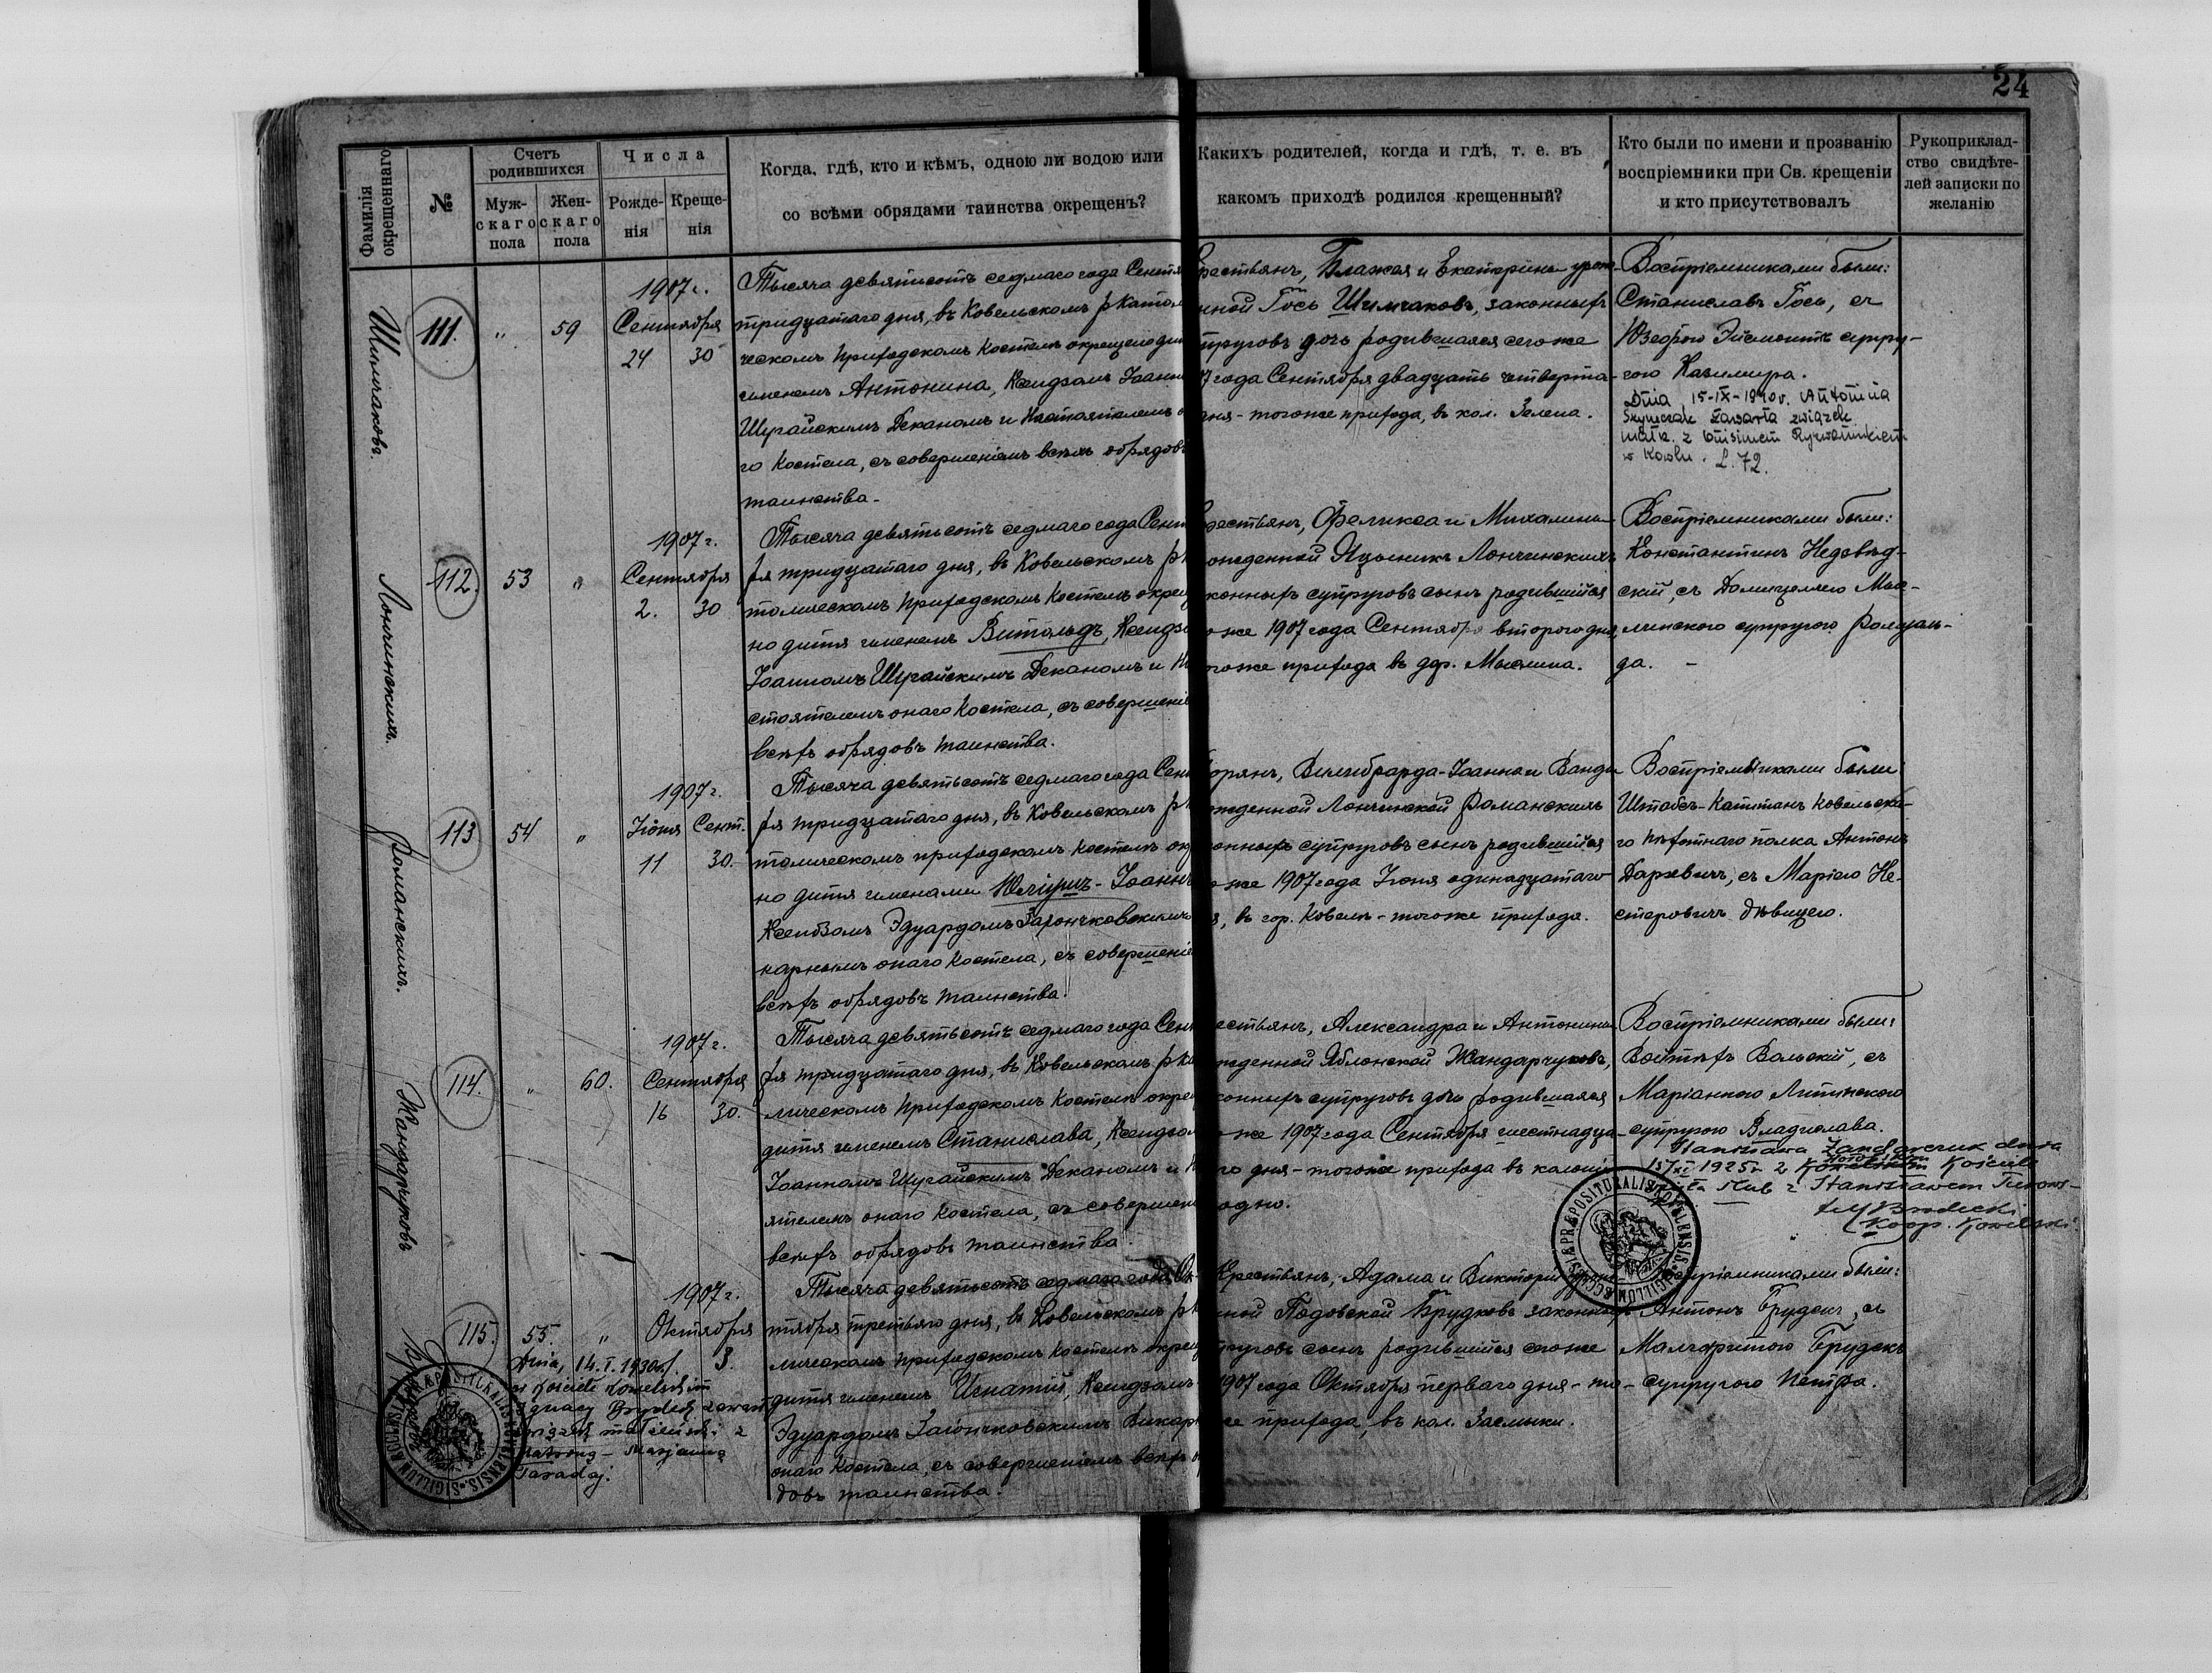 24
Фамилія окрещеннаго
№
Счетъ родившихся
Муж-скаго пола
Жен-скаго пола
Числа
Рожде-нія
Креще-нія
Когда, гдѣ, кто и кѣмъ, одною ли водою или
со всѣми обрядами таинства окрещенъ?
Какихъ родителей, когда и гдѣ, т. е. въ
какомъ приходѣ родился крещенный?
Кто были по имени и прозванію
воспріемники при Св. крещеніи
и кто присутствовалъ
Рукоприклад-
ство свидѣте-
лей записки по
желанію
Шимчаковъ.
111.
"
59
1907 г.
Сентября
24 30
Тысяча девятьсотъ седмаго года Сентя
тридцатаго дня, въ Ковельскомъ р Катол
ческомъ приходскомъ Костелѣ окрещено дит
именемъ Антонина, Ксендзомъ Іоанн
Шурайскимъ Деканомъ и Настоятелемъ о
го Костела, съ совершеніемъ всѣхъ обрядовъ
таинства.
Крестьянъ, Блажея и Екатерины урож-
нной Гось Шимчаковъ, законныхъ
пруговъ дочь родившаяся сего же
7 года Сентября двадцать четверта-
дня - тогоже прихода, въ кол. Зелена.
Воспріемниками были:
Станиславъ Гось, съ
Юзефою Эйсмонтъ супру-
гою Казимира.
Dnia 15-IX-1940 r. Antonina
Szymczak zawarła związek
małż. z
w Kowlu. L. 72.
Лончинскихъ.
112.
53
"
1907 г.
Сентября
2. 30
Тысяча девятьсотъ седмаго года Сент
ря тридцатаго дня, въ Ковельскомъ р К
толическомъ приходскомъ Костелѣ окрещ
но дитя именемъ Витольдъ, Ксендзо
Іоанномъ Шурайскимъ Деканомъ и На
стоятелемъ онаго Костела, съ совершеніе
всѣхъ обрядовъ таинства.
рестьянъ, Феликса и Михалины
ожденной Яцыникъ Лончинскихъ
конныхъ супруговъ сынъ родившійся
о же 1907 года Сентября второго дня,
тогоже прихода въ дер. Мыслина.
Воспріемниками были:
Константинъ Недзвѣд-
скій, съ Домицелею Мыс-
линскою супругою Ромуаль-
да. -
Романскихъ.
113
54
"
1907 г.
Іюня Сент.
11 30.
Тысяча девятьсотъ седмаго года Сент
ря тридцатаго дня, въ Ковельскомъ р К
толическомъ приходскомъ Костелѣ ок
но дитя именами Юліушъ-Іоаннъ
Ксендзомъ Эдуардомъ Заіончковскимъ
карнымъ онаго Костела, съ совершеніе
всѣхъ обрядовъ таинства.
орянъ, Вилибрарда-Іоанна и Ванды
жденной Лончинской Романскихъ
онныхъ супруговъ сынъ родившійся
о же 1907 года Іюня одинадцатаго
я, въ гор. Ковелѣ - тогоже прихода.
Воспріемниками были
Штабсъ-Капитанъ Ковельска-
го пѣхотнаго полка Антонъ
Даревичъ, съ Маріею Не-
стеровичъ дѣвицею.
Жандарчуковъ
114.
"
60.
1907 г.
Сентября
16 30.
Тысяча девятьсотъ седмаго года Сент
ря тридцатаго дня, въ Ковельскомъ р Ка
лическомъ приходскомъ Костелѣ окрещ
дитя именемъ Станислава, Ксендзом
Іоанномъ Шурайскимъ Деканомъ и Н
ятелемъ онаго Костела, съ совершені
всѣхъ обрядовъ таинства.
естьянъ, Александра и Антонины
жденной Яблонской Жандарчуковъ,
конныхъ супруговъ дочь родившаяся
о же 1907 года Сентября шестнадца-
го дня - тогоже прихода въ колоніи
одно.
Воспріемниками были:
Войтѣхъ Вольскій, съ
Маріанною Литинскою
супругою Владислава.
Stanisława Żandarczuk dnia
1925 r. z Kościele
ślub z Stanisławem
Brodecki
Koop. Kowelski
SIGILLUM ECCLESIÆ PRÆPOSITURALIS KOVELENSIS
115.
55.
"
1907 г.
Октября
3.
Тысяча девятьсотъ седмаго года Ок-
тября третьяго дня, въ Ковельскомъ р К
лическомъ приходскомъ Костелѣ окрещ
дитя именемъ Игнатій, Ксендзомъ
Эдуардомъ Заіончковскимъ Викар
онаго Костела, съ совершеніемъ всѣхъ о
довъ таинства.
Крестьянъ, Адама и Викторіи
ной Подовской Брудковъ законныхъ
пруговъ сынъ родившійся сегоже
1907 года Октября перваго дня - то-
же прихода, въ кол. Засмыки.
Воспріемниками были:
Антонъ Брудекъ, съ
Малгоритою Брудекъ
супругою Петра.
Dnia, 14.I.1930 r.
w Kościele Kowelskim
Ignacy Brydek zawarł
związek małżeński z
Marjanną
Taradaj.
SIGILLUM ECCLESIÆ PRÆPOSITURALIS KOVELENSIS